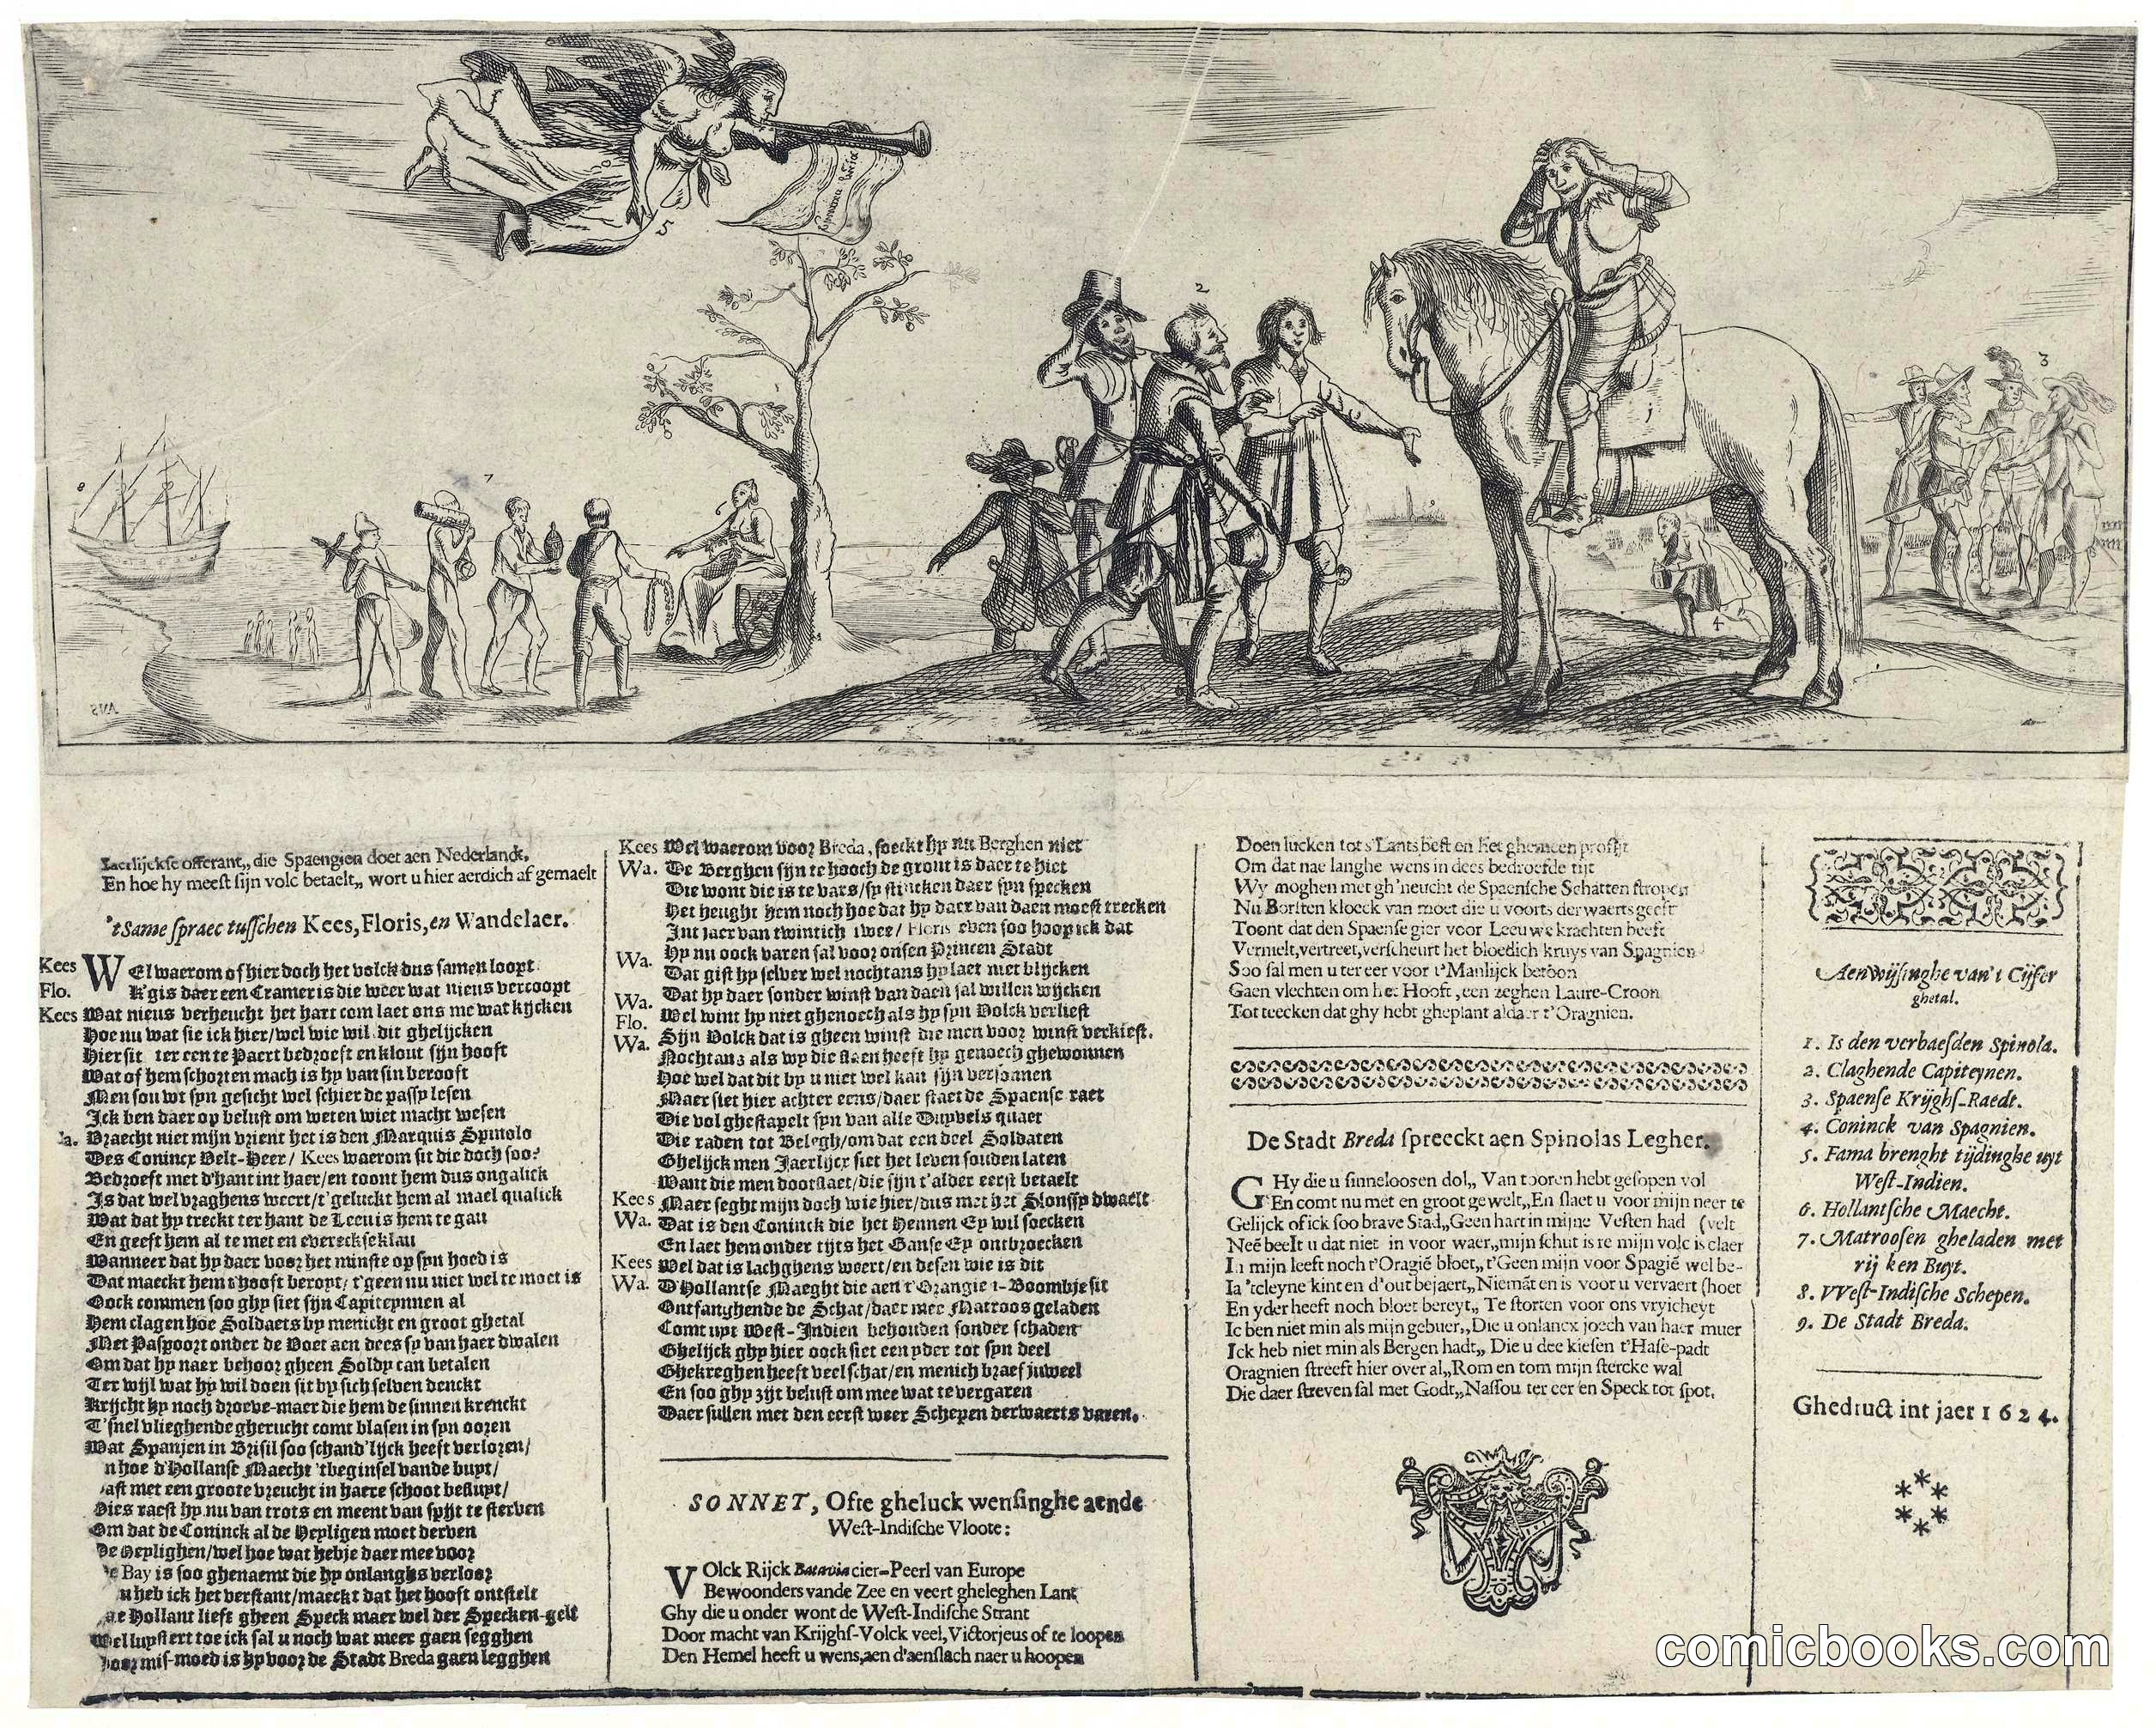 5
2
3
8
7
9
1
4
Jaerlijckse offerant„ die Spaengien doet aen Nederlandt,
En hoe hy meest sijn volc betaelt„ wort u hier aerdich af gemaelt
'tSame spraec tusschen Kees, Floris, en Wandelaer.
Kees WEl waerom of hier doch het volck dus samen loopt
Flo. K'gis daer een Cramer is die weer wat nieus vercoopt
Kees Wat nieus verheucht het hart com laet ons me wat kijcken
Hoe nu wat sie ick hier/wel wie wil dit ghelijcken
Hier sit ter een te Paert bedroeft en klout sijn hooft
Wat of hem schorten mach is hy van sin berooft
Men sou wt syn gesicht wel schier de passy lesen
Ick ben daer op belust om weten wiet macht wesen
Wa. Vraecht niet mijn vrient het is den Marquis Spinolo
Des Conincx Velt-Heer/ Kees waerom sit die doch soo?
Bedroeft met d'hant int haer/en toont hem dus ongalick
Is dat wel vraghens weert/t'geluckt hem al mael qualick
Wat dat hy treckt ter hant de Leeu is hem te gau
En geeft hem al te met en evereckse klau
Wanneer dat hy daer voor het minste op syn hoed is
Dat maeckt hem t'hooft beropt/ t'geen nu niet wel te moet is
Oock commen soo ghy siet sijn Capiteynnen al
Hem clagen hoe Soldaets by menicht en groot ghetal
Met Paspoort onder de Voet aen dees sy van haer dwalen
Om dat hy naer behoor gheen Soldy can betalen
Ter wijl wat hy wil doen sit by sich selven denckt
Krijcht hy noch droeve-maer die hem de sinnen krenckt
T'snel vlieghende gherucht comt blasen in syn ooren
Wat Spanjen in Brisil soo schand'lijck heeft verloren/
n hoe d'Hollanse Maecht 'tbeginsel vande buyt/
ast met een groote vreucht in haere schoot besluyt/
Dies raest hy nu van trots en meent van spyt te sterven
Om dat de Coninck al de Heyligen moet derven
De Heylighen/wel hoe wat hebje daer mee voor
de Bay is soo ghenaemt die hy onlanghs verloor
u heb ick het verstant/maeckt dat het hooft ontstelt
ae Hollant lieft gheen Speck maer wel der Specken-gelt
Wel luystert toe ick sal u noch wat meer gaen segghen
Door mis-moed is hy voor de Stadt Breda gaen legghen
Kees Wel waerom voor Breda, soeckt hy nu Berghen niet
Wa. De Berghen sijn te hooch de gront is daer te hiet
Die wont die is te vars/sy stincken daer syn specken
Het heught hem noch hoe dat hy daer van daen moest trecken
Int jaer van twintich twee/ Floris even soo hoop ick dat
Hy nu oock varen sal voor onsen Princen Stadt
Wa. Dat gist hy selver wel nochtans hy laet niet blijcken
Dat hy daer sonder winst van daen sal willen wijcken
Wa. Wel wint hy niet ghenoech als hy syn Volck verliest
Flo. Sijn Volck dat is gheen winst die men voor winst verkiest.
Wa. Nochtans als wy die slaen heeft hy genoech ghewonnen
Hoe wel dat dit by u niet wel kan sijn versonnen
Maer siet hier achter eens/daer staet de Spaense raet
Die vol ghestapelt syn van alle Duyvels quaet
Die raden tot Belegh/om dat een deel Soldaten
Ghelijck men Jaerlijcx siet het leven souden laten
Want die men doot slaet/die sijn t'alder eerst betaelt
Kees Maer seght mijn doch wie hier/dus met het Slonssy dwaelt
Wa. Dat is den Coninck die het Hennen Ey wil soecken
En laet hem onder tijts het Ganse Ey ontbroecken
Kees Wel dat is lachghens weert/en desen wie is dit
Wa. D'Hollantse Maeght die aen t'Orangie t-Boombje sit
Ontfanghende de Schat/daer mee Matroos geladen
Comt uyt West-Indien behouden sonder schaden
Ghelijck ghy hier oock siet een yder tot syn deel
Ghekreghen heeft veel schat/en menich braef juweel
En soo ghy zijt belust om mee wat te vergaren
Daer sullen met den eerst weer Schepen derwaerts varen.
SONNET, Ofte gheluck wensinghe aende
West-Indische Vloote:
VOlck Rijck Batavia cier-Peerl van Europe
Bewoonders vande Zee en veert gheleghen Lant
Ghy die u onder wont de West-Indische Strant
Door macht van Krijghs-Volck veel, Victorjeus of te loopen
Den Hemel heeft u wens,aen d'aenslach naer u hoopen
Doen lucken tot s'Lants best en het ghemeen profijt
Om dat nae langhe wens in dees bedroefde tijt
Wy moghen met gh'neucht de Spaensche Schatten stropen
Nu Borsten kloeck van moet die u voorts derwaerts geeft
Toont dat den Spaense gier voor Leeuwe krachten beeft
Vermelt,vertreet,verscheurt het bloedich kruys van Spagnien
Soo sal men u ter eer voor t'Manlijck betoon
Gaen vlechten om het Hooft, een zeghen Laure-Croon
Tot teecken dat ghy hebt gheplant aldaer t'Oragnien.
De Stadt Breda spreeckt aen Spinolas Legher.
GHy die u sinneloosen dol„ Van tooren hebt gesopen vol
En comt nu met en groot gewelt„En slaet u voor mijn neer te
Gelijck of ick soo brave Stad„Geen hart in mijne Vesten had (velt
Neẽ beelt u dat niet in voor waer„mijn schut is re mijn volc is claer
In mijn leeft noch t'Oragiẽ bloet„ t'Geen mijn voor Spagiẽ wel be-
Ia 'tcleyne kint en d'out bejaert„Niemãt en is voor u vervaert (hoet
En yder heeft noch bloet bereyt„ Te storten voor ons vryicheyt
Ic ben niet min als mijn gebuer„Die u onlancx joech van haer muer
Ick heb niet min als Bergen hadt„ Die u dee kiesen t'Hase-padt
Oragnien streeft hier over al„Rom en tom mijn stercke wal
Die daer streven sal met Godt„Nassou ter eer en Speck tot spot.
Aenwijsinghe van't Cijfer
ghetal.
1. Is den verbaesden Spinola.
2. Claghende Capiteynen.
3. Spaense Krijghs-Raedt.
4. Coninck van Spagnien.
5. Fama brenght tijdinghe uyt
West-Indien.
6. Hollantsche Maecht.
7. Matroosen gheladen met
rijcken Buyt.
8. West-Indische Schepen.
9. De Stadt Breda.
Ghedruct int jaer 1624.
comicbooks.com